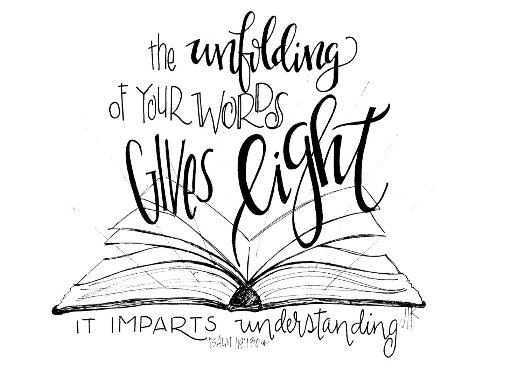 the unfolding
OF YOUR WORDS
GIVES light
IT IMPARTS understanding